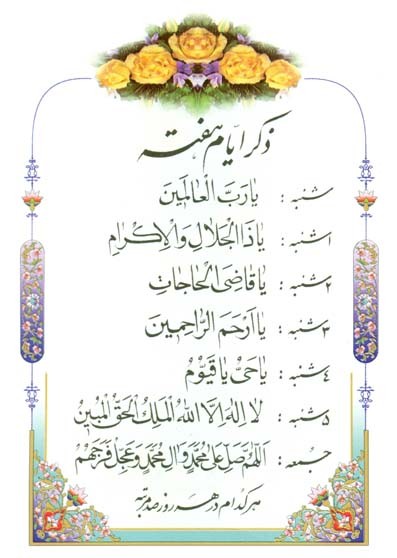 ذکر ایام هفته
شنبه : یا رَبَّ الْعالَمینَ
۱شنبه : یا ذَا الْجَلالِ وَ الْاِکْرامِ
۲شنبه : یا قاضِیَ الْحاجاتِ
۳شنبه : یا اَرْحَمَ الرّاحِمینَ
٤شنبه : یا حَیُّ یا قَیّوُمُ
۵شنبه : لا اِلهَ اِلَّا اللهُ الْمَلِکُ الْحَقُّ الْمُبینُ
جمعه : اَللّهُمَّ صَلِّ عَلی مُحَمَّدٍ وَ الِ مُحَمَّدٍ وَ عَجِّلْ فَرَجَهُمْ
هر کدام در هر روز صد مرتبه